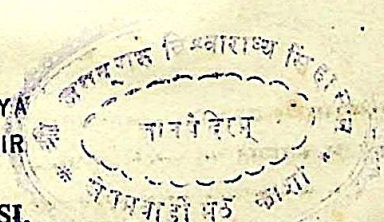 YA
IR
SI.
जगद्गुरु विश्वाराध्य सिंहासन
ज्ञानमंदिरम्
* जंगमवाडी मठ काशी *